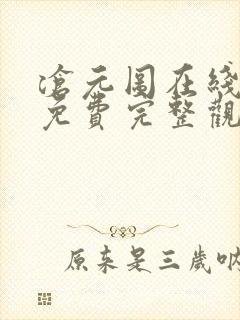 滄元圖在綫
免費完整觀
原来是三歲呐